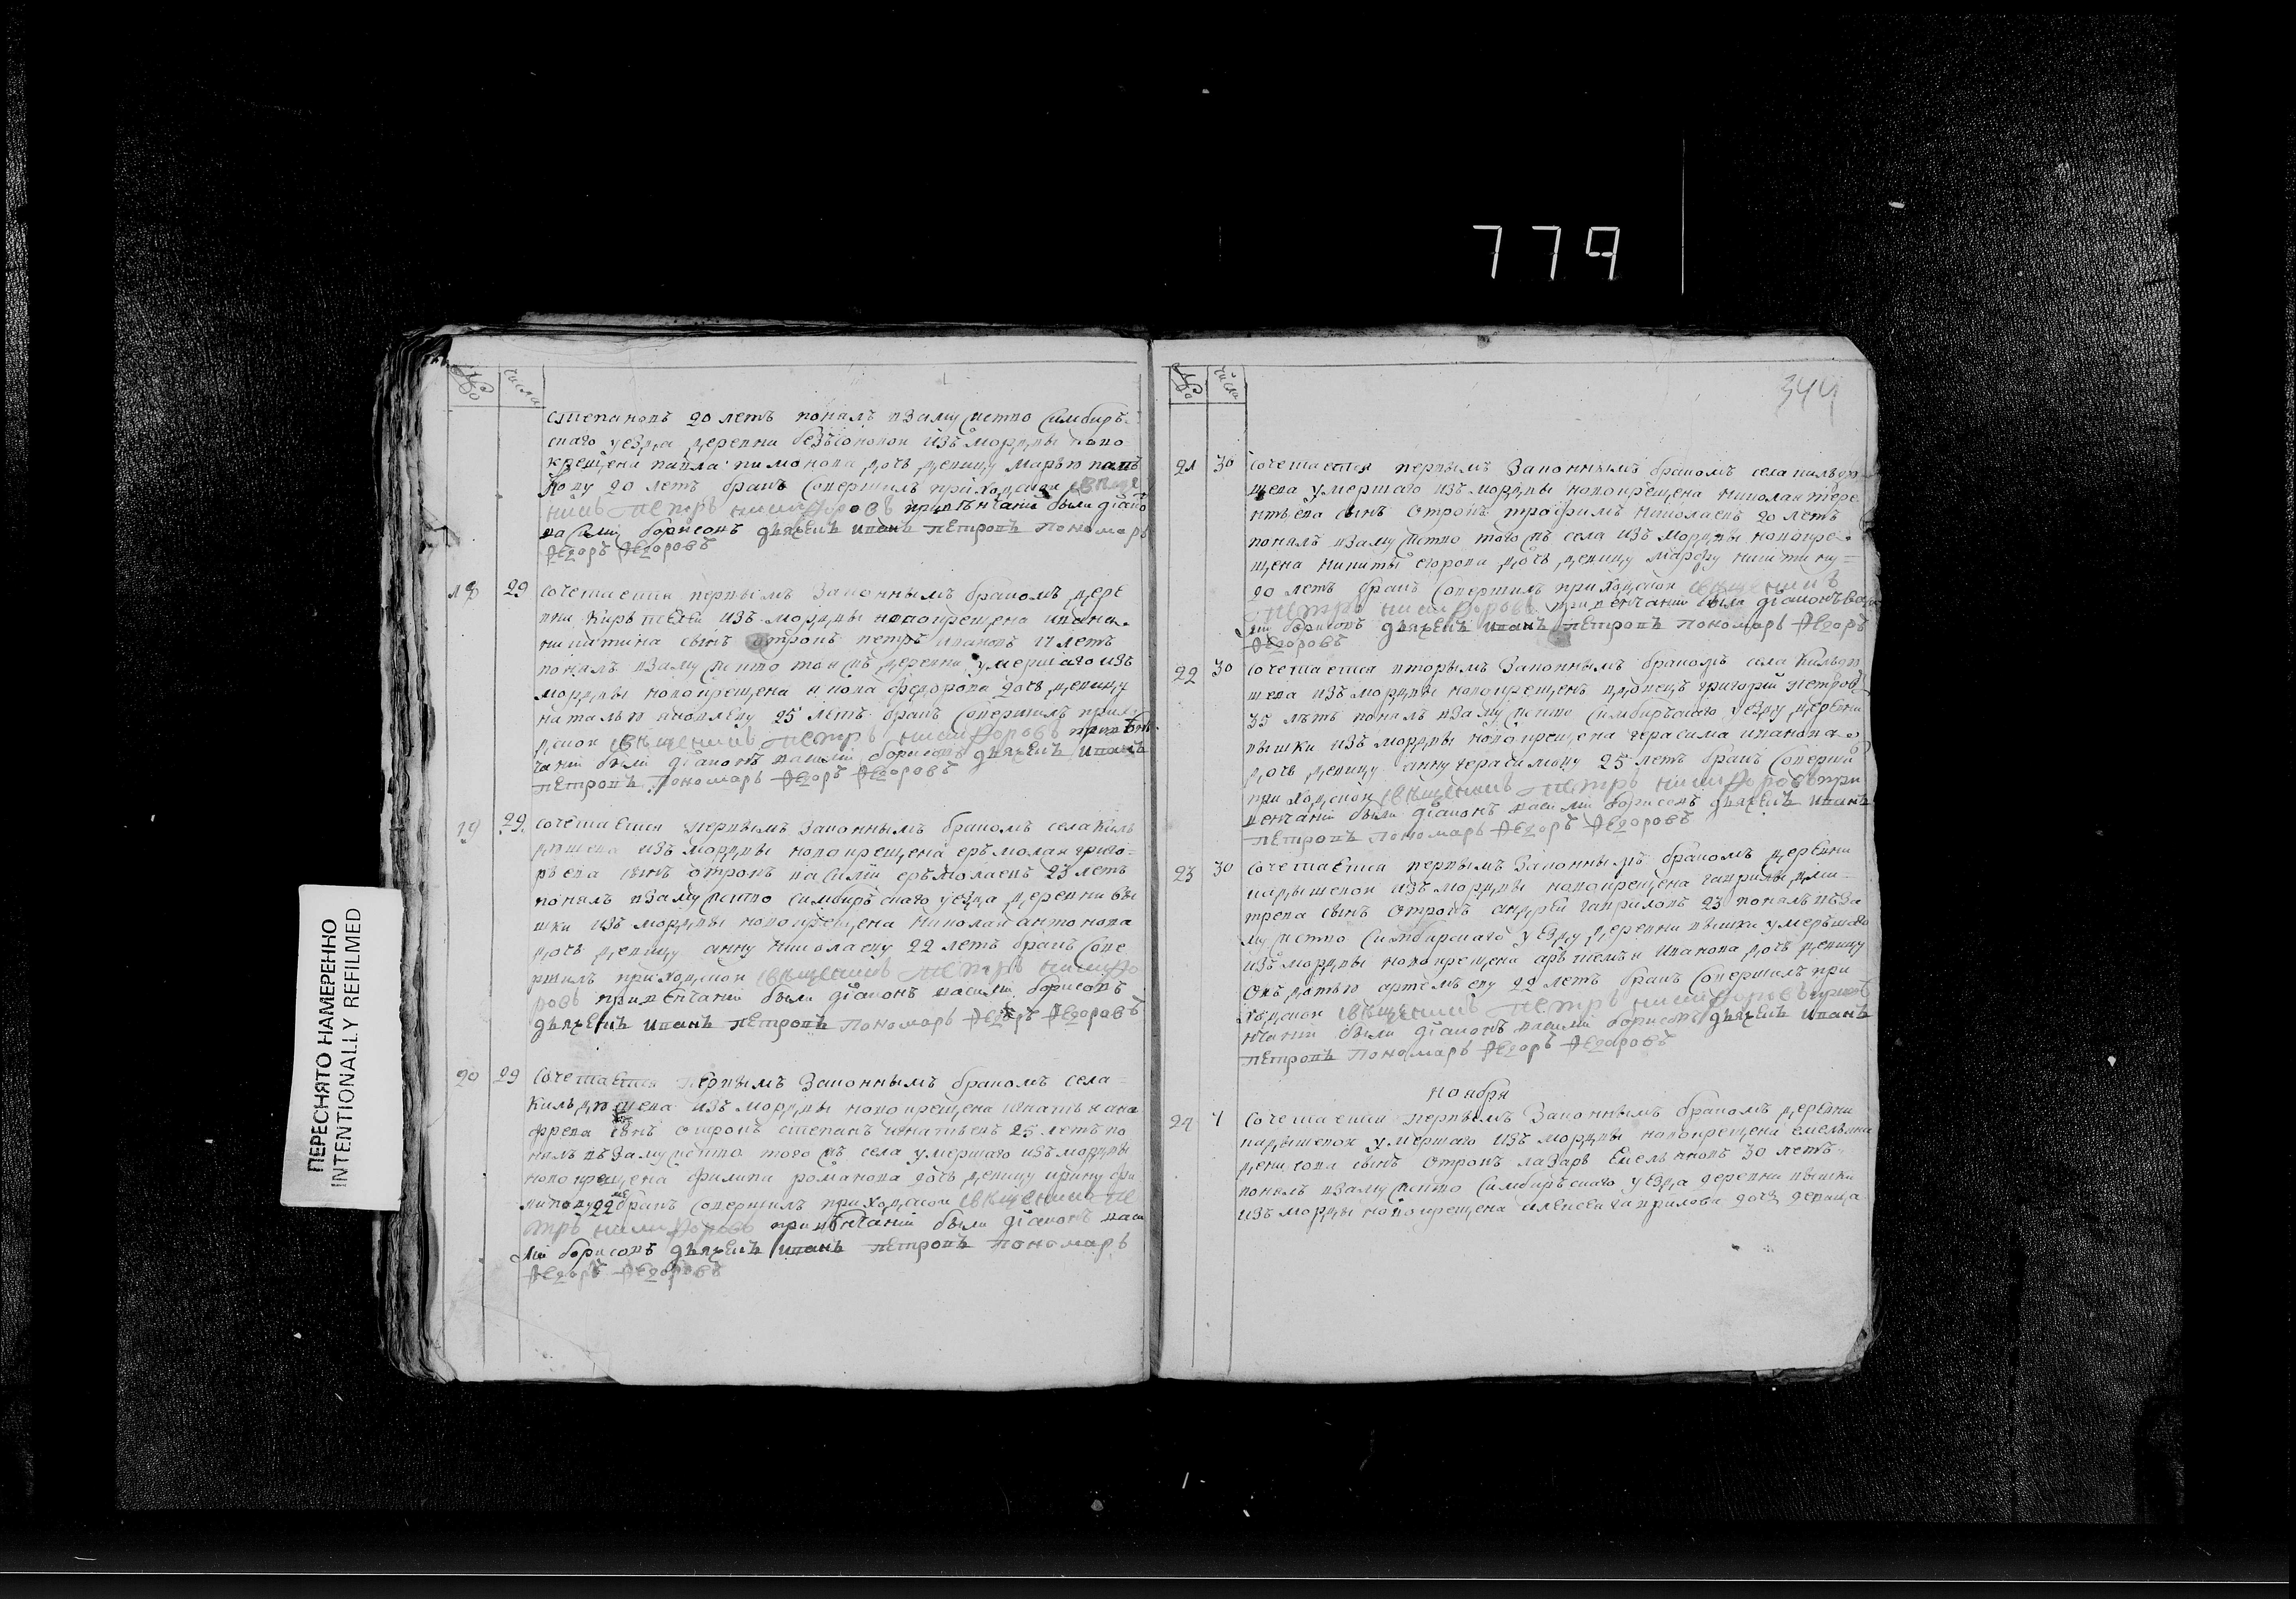 779
ПЕРЕСНЯТО НАМЕРЕННО
INTENTIONALLY REFILMED
№ числа
степановъ 20 летъ понялъ взамужство Симбиръ
скаго уезда деревни изъ мордвы ново
крещена павла пимонова дочь девицу марью павъ
лову 20 летъ бракъ совершилъ приходской священ
никъ петръ никифоровъ привѣнчаніи были діако
василій борисовъ дьячекъ иванъ петровъ пономарь
Ѳедоръ Ѳедоровъ
18 29 сочетается первымъ законнымъ бракомъ дере
вни изъ мордвы новокрещена ивана
никитина сынъ отрокъ петръ ивановъ 17 летъ
понялъ взамужство тои жъ деревни умершаго изъ
мордвы новокрещена якова федорова дочь девицу
наталью яковлеву 25 летъ бракъ совершилъ прихо
дской священникъ петръ никифоровъ привѣн
чаніи были діаконъ василій борисовъ дьячекъ иванъ
петровъ пономарь Ѳедоръ Ѳедоровъ
19 29 сочетается первымъ законнымъ бракомъ села Киль
дюшева изъ мордвы новокрещена ерьмолая григо
рьева сынъ отрокъ василій ерьмолаевъ 23 летъ
понялъ взамужство симбирьскаго уезда деревни вы
шки изъ мордвы новокрещена николая антонова
дочь девицу анну николаеву 22 летъ бракъ сове
ршилъ приходской священникъ петръ никифо
ровъ привенчаніи были діаконъ василій борисовъ
дьячекъ иванъ петровъ пономарь Ѳедоръ Ѳедоровъ
20 29 Сочетается первымъ законнымъ бракомъ села
Кильдюшева изъ мордвы новокрещена игнатья она
фрева сынъ отрокъ степанъ игнатьевъ 25 летъ по
нялъ въ замужство того жъ села умершаго изъ мордвы
новокрещена филипа романова дочь девицу ирину фи
липову 22 бракъ совершилъ приходской священникъ пе
тръ никифоровъ привѣнчаніи были діаконъ васи
лій борисовъ дьячекъ иванъ петровъ пономарь
Ѳедоръ Ѳедоровъ
№ числа
344
21 30 сочетается первымъ законнымъ бракомъ села кильдю
шева умершаго изъ мордвы новокрещена николая тере
нтьева сынъ отрокъ трофимъ николаевъ 20 летъ
понялъ взамужство того жъ села изъ мордвы новокре
щена никиты егорова дочь девицу марфу никитину
20 летъ бракъ совершилъ приходской священникъ
петръ никифоровъ привенчаніи были діаконъ васи
лій борисовъ дьячекъ иванъ петровъ пономарь Ѳедоръ
Ѳедоровъ
22 30 Сочетается вторымъ законнымъ бракомъ села Кильдю
шева изъ мордвы новокрещенъ вдовецъ григорій петровъ
35 лѣтъ понялъ взамужство Симбирьскаго уезду деревни
вышки изъ мордвы новокрещена герасима иванова
дочь девицу анну герасимову 25 летъ бракъ соверши
приходской священникъ петръ никифоровъ при
венчаніи были діаконъ василій борисовъ дьячекъ иванъ
петровъ пономарь Ѳедоръ Ѳедоровъ
23 30 Сочетается первымъ законнымъ бракомъ деревни
изъ мордвы новокрещена гаврилы дми
трева сынъ отрокъ андрей гавриловъ 23 понялъ въ за
мужство Симбирскаго уезду деревни вышки умершаго
изъ мордвы новокрещена арьтемья иванова дочь девицу
овъдотью артемьеву 22 летъ бракъ совершилъ при
ходской священникъ петръ никифоровъ приве
нчаніи были діаконъ василій борисовъ дьячекъ иванъ
петровъ пономарь Ѳедоръ Ѳедоровъ
ноября
24 1 Сочетается первымъ законнымъ бракомъ деревни
умершаго изъ мордвы новокрещена емельяна
денисова сынъ отрокъ лазарь емельяновъ 30 летъ
понялъ взамужство Симбирьскаго уезда деревни вышки
изъ мордвы новокрещена алексея гаврилова дочь девица